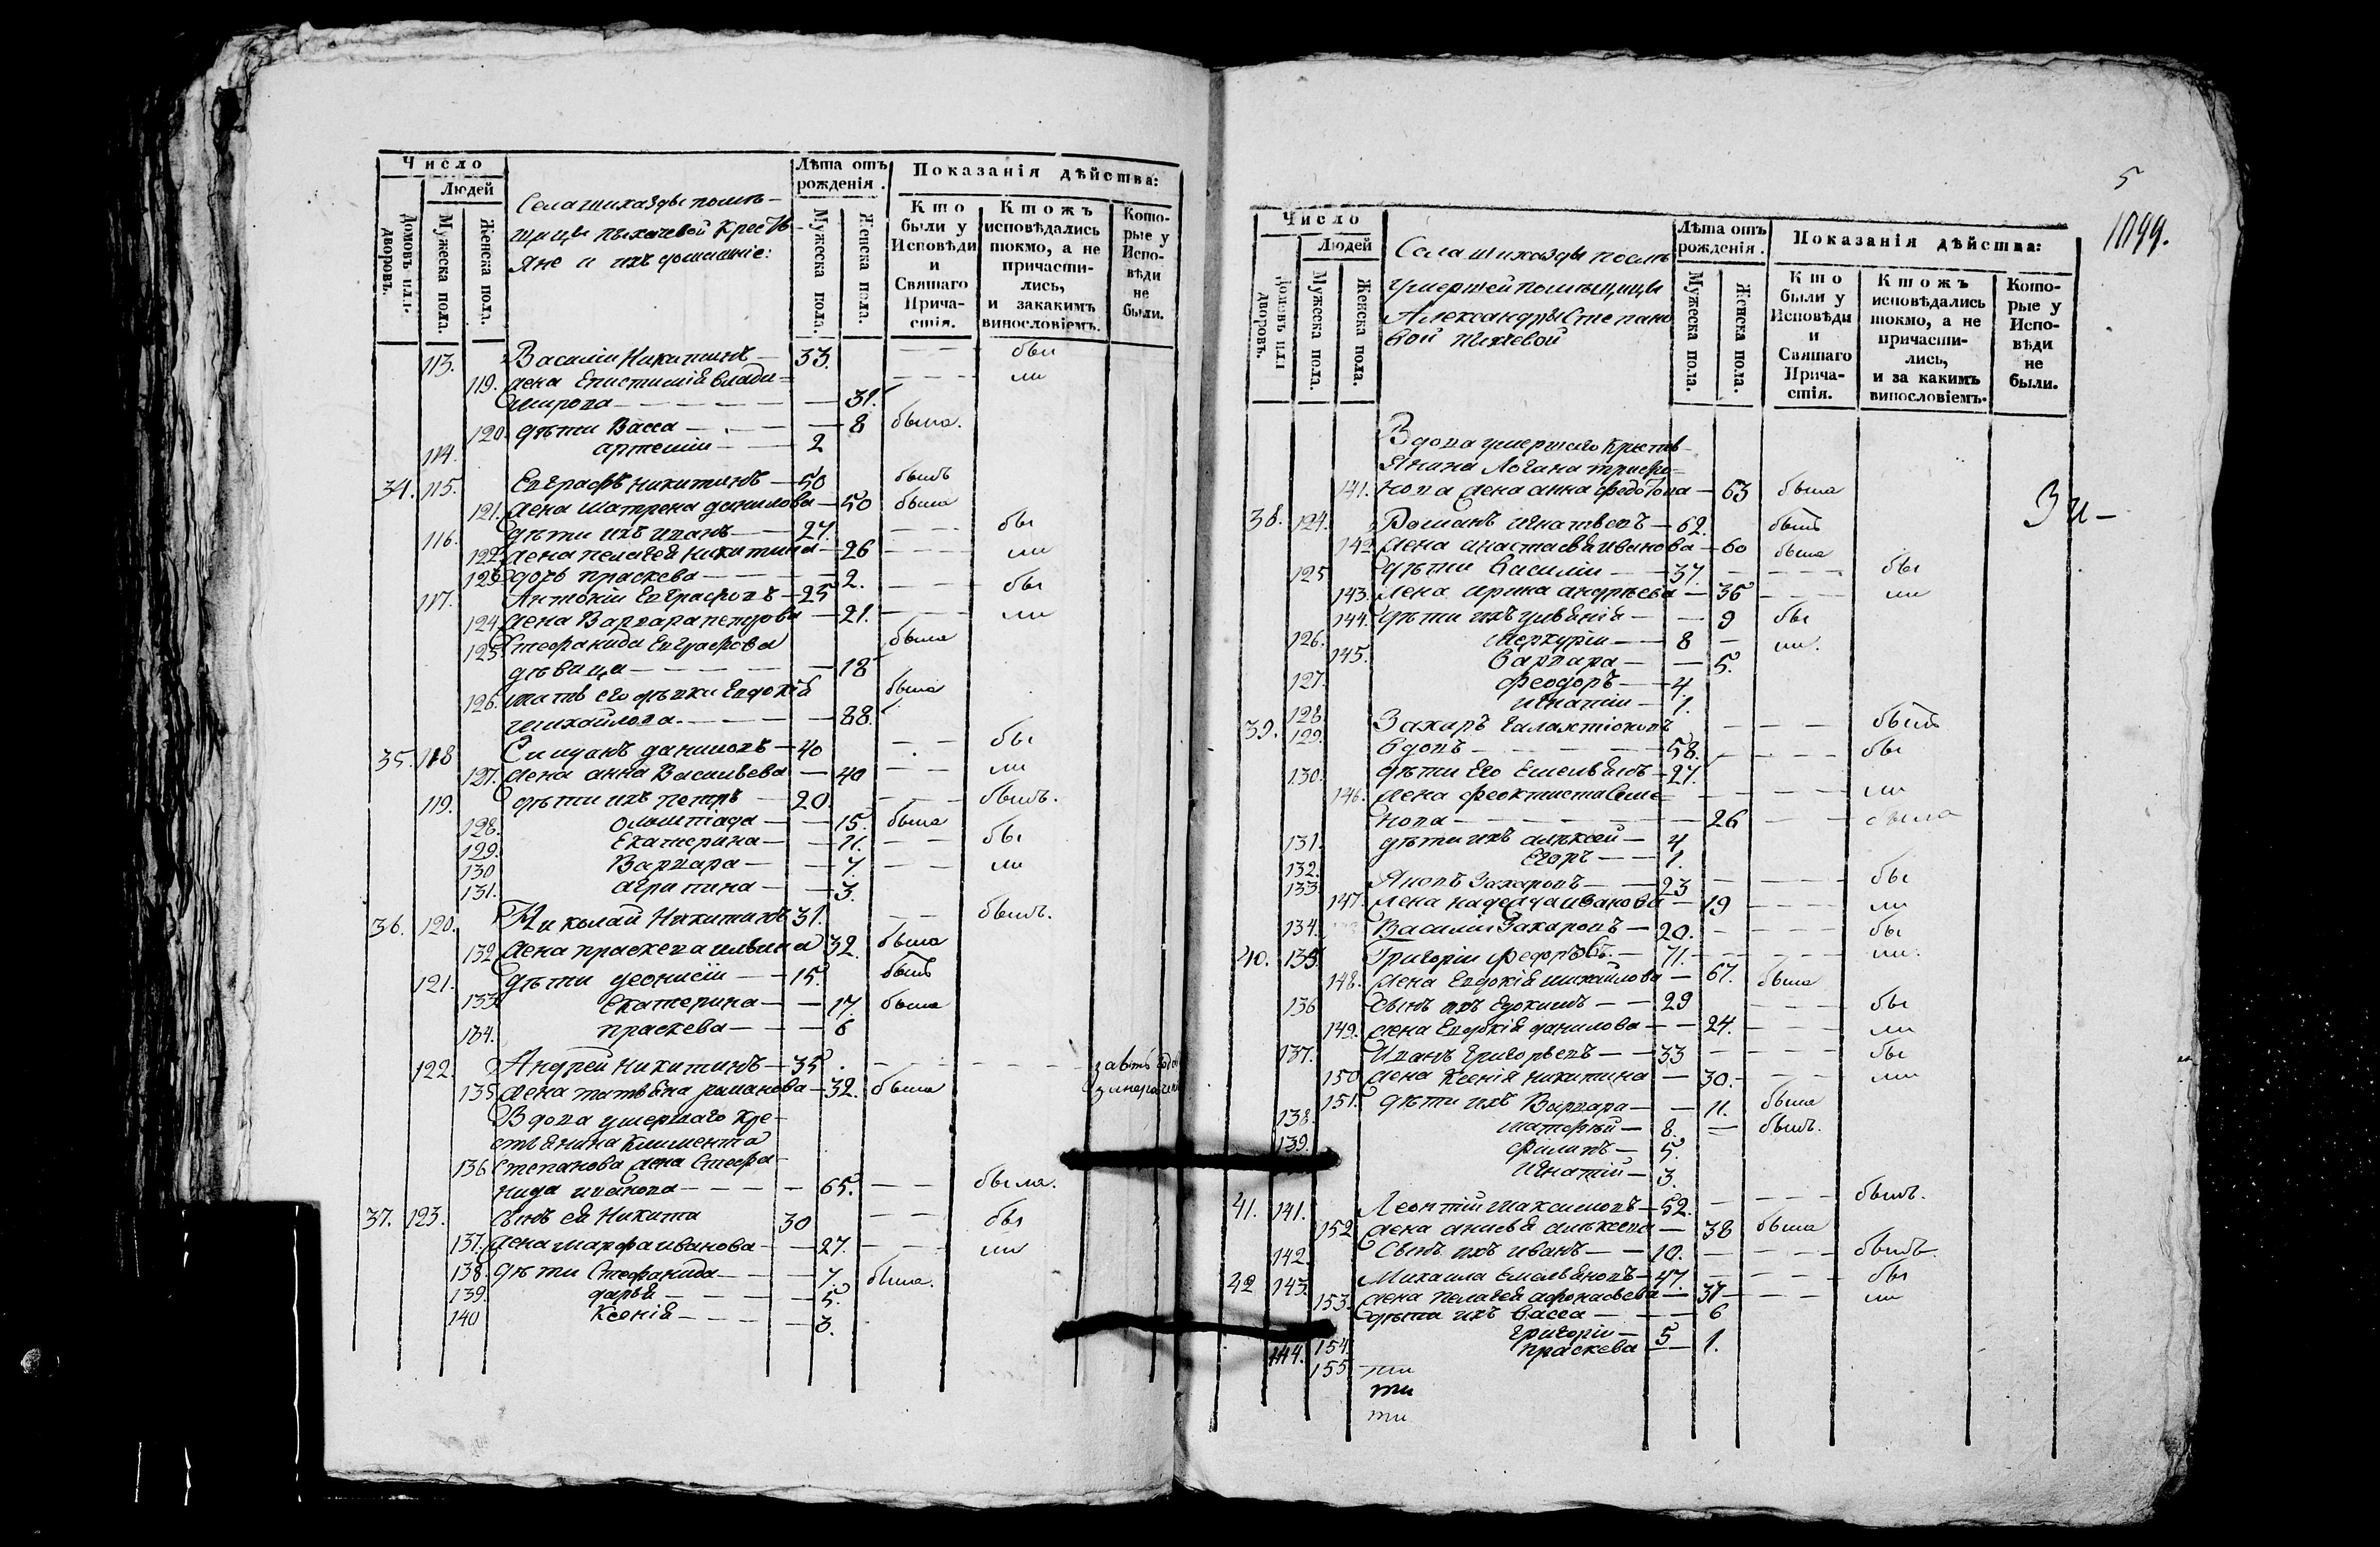 Число
Людей
Домовъ или дворовъ.
Мужеска пола.
Женска пола.
Села Шихазды помѣ-
щицы Пыхачевой Кресть-
яне и ихъ домашніе:
Лѣта отъ рожденія.
Мужеска пола.
Женска пола.
Показанія дѣйства:
Кто были у Исповѣди и Святаго Причастія.
Ктожъ исповѣдались токмо, а не причастились, и закакимъ винословіемъ.
Которые у Исповѣди не были.
113. Василій Никитинъ — 33. бы
119. жена Епистимія Влади=
мирова — 31. ли
120. дѣти Васса — 8 была.
114. Артемій — 2
34. 115. Евграфъ Никитинъ — 50 былъ
121. жена Матрена Данилова — 50 была
116. дѣти ихъ Иванъ — 27. бы
122. жена Пелагея Никитина — 26 ли
123. дочь Праскева — 2.
117. Антоній Евграфовъ — 25 бы
124. жена Варвара Петрова — 21. ли
125. Стефанида Евграфова была
дѣвица — 18
126. мать его дѣвки Евдокія была
Михайлова — 88.
35. 118 Симданъ Даниловъ — 40 бы
127. жена Анна Васильева — 40 ли
119. дѣти ихъ Петръ — 20. былъ.
128. Олимпіада — 15. была
129. Екатерина — 11. бы
130 Варвара — 7. ли
131. Агрипина — 3.
36. 120. Николай Никитинъ 31. былъ.
132 жена Праскева Ильина 32. была
121. дѣти Деонисій — 15. былъ
133 Екатерина — 17. была
134. Праскева — 6
122. Андрей Никитинъ — 35
135 жена Татьяна Романова — 32. была
Вдова умершаго кре-
стьянина Климента
136 Степанова жена Стефа-
нида Иванова — 65. была.
37. 123. сынъ ея Никита 30 бы
137. жена Марфа Иванова — 27. ли
138. дѣти Стефанида — 7. была.
139. Дарья — 5.
140 Ксенія — 3.
5
1099.
Число
Людей
Домовъ или дворовъ.
Мужеска пола.
Женска пола.
Села Шихазды послѣ
Умершей помѣщицы
Александры Степано
вой Пыхачевой
Лѣта отъ рожденія.
Мужеска пола.
Женска пола.
Показанія дѣйства:
Кто были у Исповѣди и Святаго Причастія.
Ктожъ исповѣдались токмо, а не причастились, и за какимъ винословіемъ.
Которые у Исповѣди не были.
Вдова умершаго кресть-
янина Логина Трифо=
141. нова жена Анна Федотова — 63 была
38. 124. Романъ Игнатьевъ — 62. былъ
142 жена Анастасья Иванова — 60 была
125 дѣти Василій — 37. бы
143. жена Ирина Андреева — 36 ли
144. дѣти ихъ Уліянія — 9 бы
126. Меркурій — 8 ли.
145. Варвара — 5.
127. Феодоръ — 4.
128 Игнатій — 1.
39. 129. Захаръ Галактіоновъ былъ
вдовъ — 58. бы
130. дѣти его Емельянъ — 27.
146. жена Феоктиста Семе= ли
нова — 26 была
131. дѣти ихъ Алексей — 4
132. Егоръ — 1.
133 Яковъ Захаровъ — 23 бы
147. жена Надежда Иванова — 19 ли
134. Василій Захаровъ — 20. бы
40. 135. Григорій Федоровъ — 71. ли.
148. жена Евдокія Михайлова — 67. была
136 Сынъ ихъ Евдокимъ — 29 бы
149. жена Евдокія Данилова — 24. ли
137. Иванъ Григорьевъ — 33 бы
150 жена Ксенія Никитина — 30. ли
151. дѣти ихъ Варвара — 11. была
138. Матфей — 8. былъ.
139. Филипъ — 5.
Игнатій — 3.
41. 141. Леонтій Максимовъ — 52. былъ.
152 жена Анисья Алексева — 38 была
142. Сынъ ихъ Иванъ — 10. былъ.
42 143. Михаила Емельяновъ — 47. бы
153. жена Пелагея Афонасьева — 37 ли
дѣти ихъ Васса — 6
154. Григорій — 5
144. 155. Праскева — 1.
ти
ти
ти